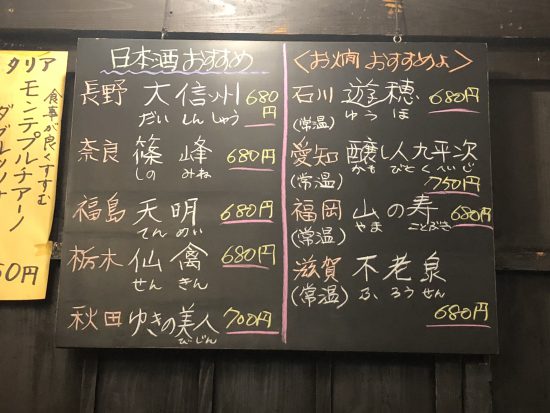 タリア
食事が良くすすむ
モンテプルチアーノ
0円
日本酒おすすめ
長野 大信州 680円
だい しん しゅう
奈良 篠峰 680円
しの みね
福島 天明 680円
てん めい
栃木 仙禽 680円
せん きん
秋田 ゆきの美人 700円
びじん
<お燗 おすすめよ>
石川 遊穂 680円
(常温) ゆう ほ
愛知 醸し人九平次
(常温) かも びと くへいじ
750円
福岡 山の寿 680円
(常温) やま ことぶき
滋賀 不老泉
(常温) ふ ろう せん
680円